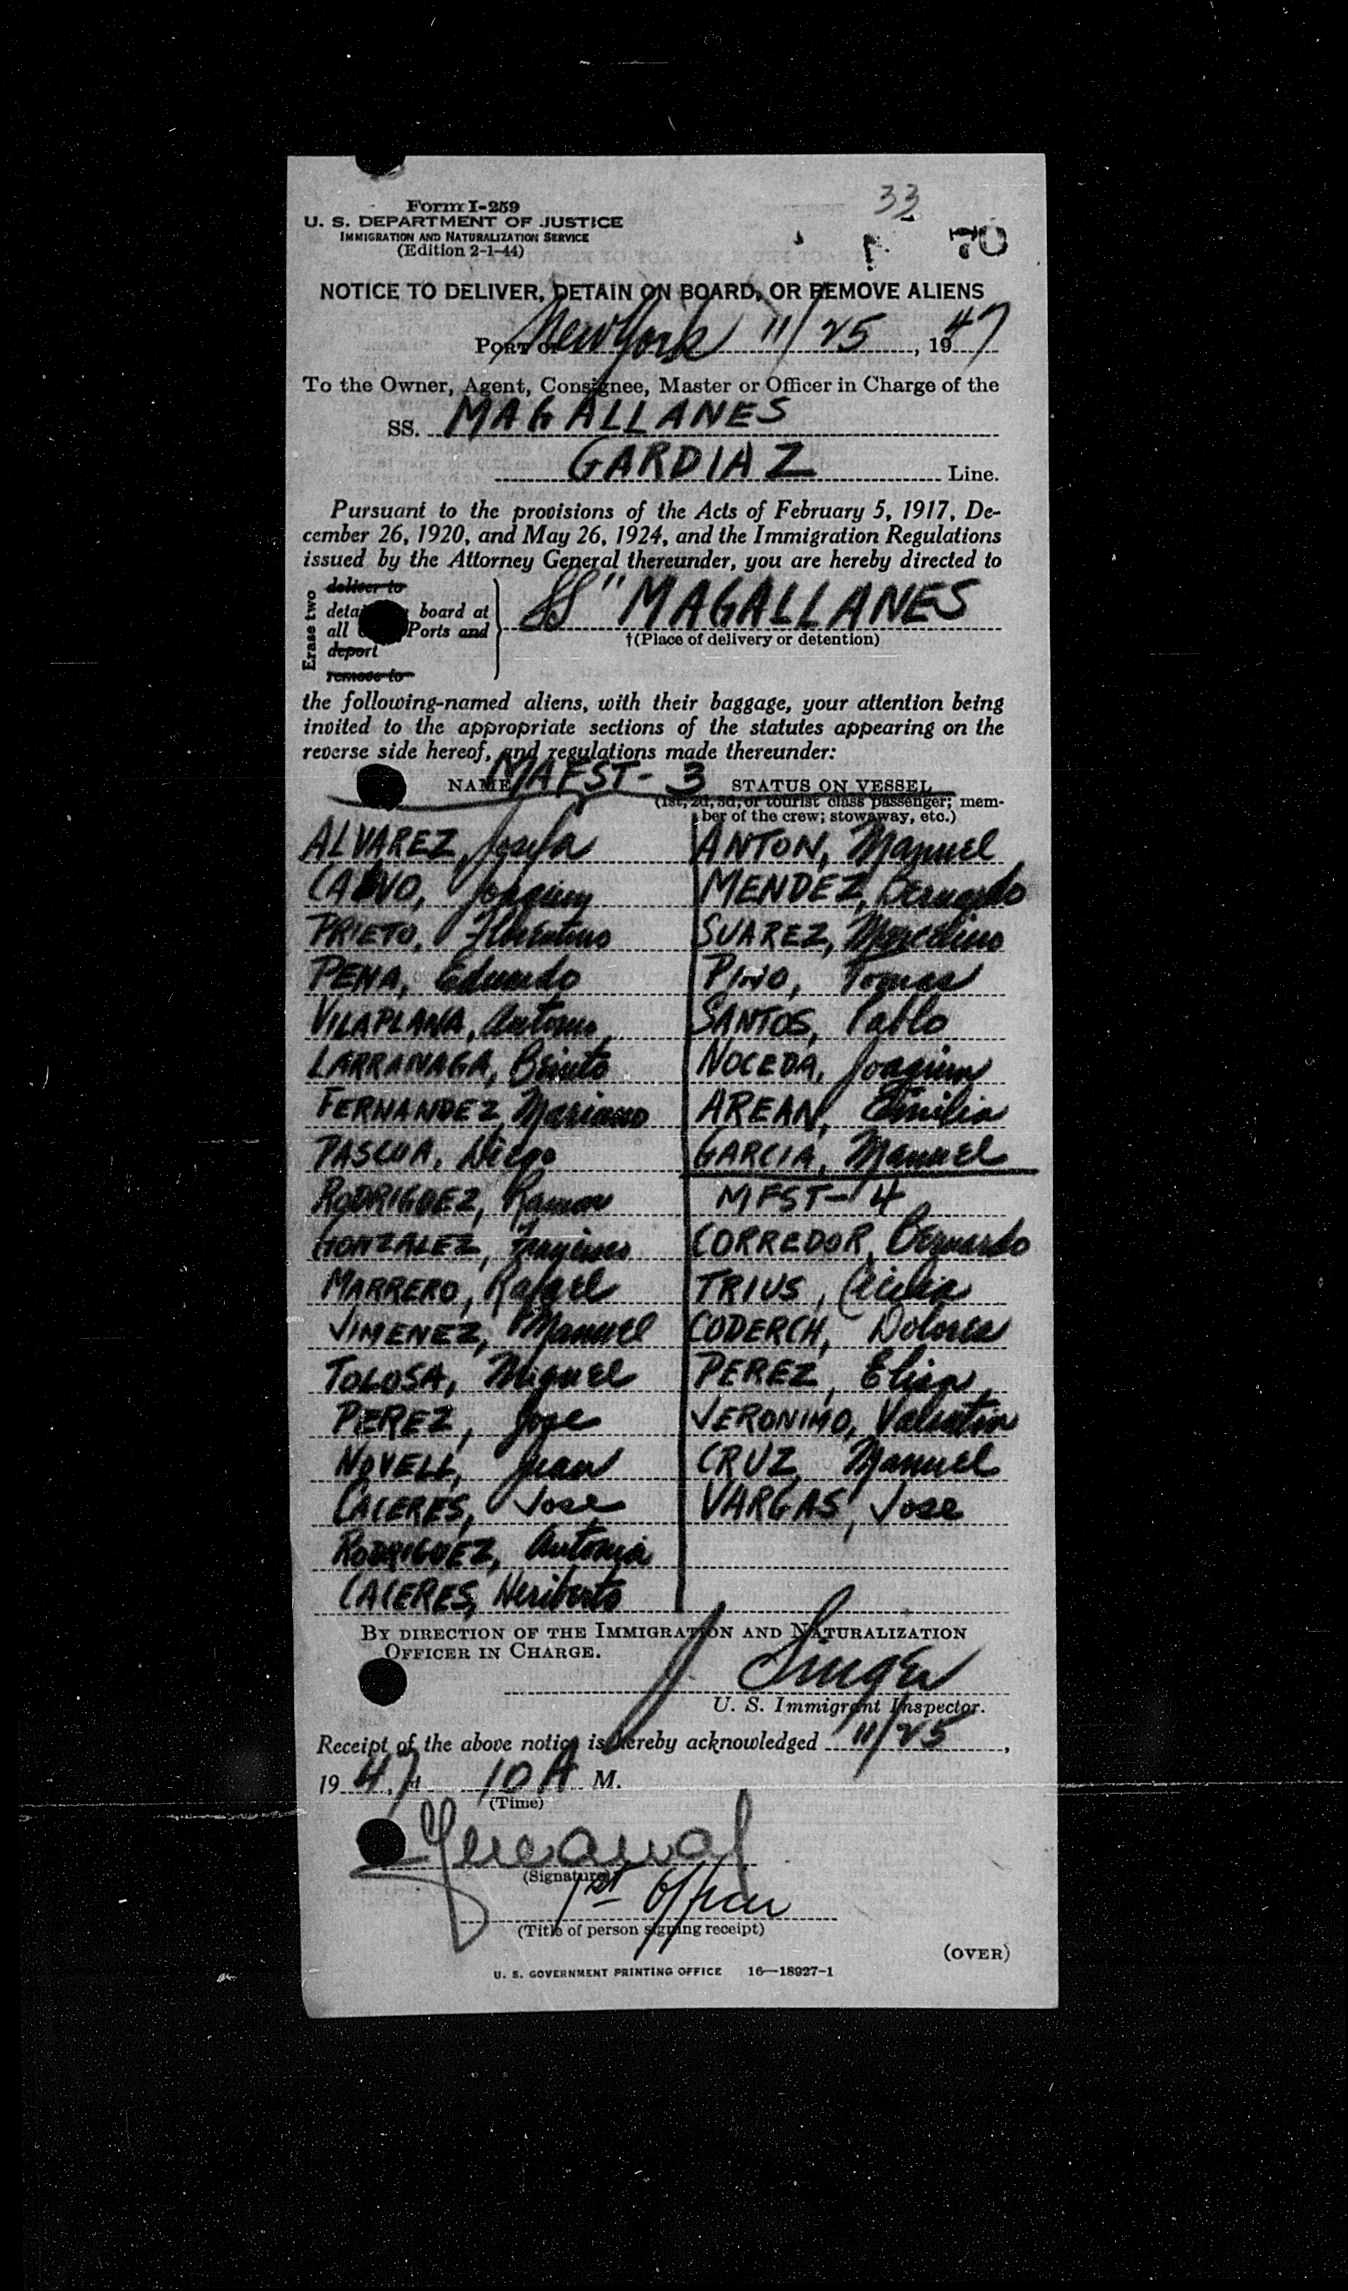 33
70
Form I-259
U. S. DEPARTMENT OF JUSTICE
IMMIGRATION AND NATURALIZATION SERVICE
(Edition 2-1-44)
NOTICE TO DELIVER, DETAIN ON BOARD, OR REMOVE ALIENS
PORT OF New York 11/25, 1947
To the Owner, Agent, Consignee, Master or Officer in Charge of the
SS. MAGALLANES
GARDIAZ Line.
Pursuant to the provisions of the Acts of February 5, 1917, De-
cember 26, 1920, and May 26, 1924, and the Immigration Regulations
issued by the Attorney General thereunder, you are hereby directed to
Erase two
deliver to
board at
all Ports and
deport
remove to
SS "MAGALLANES
†(Place of delivery or detention)
the following-named aliens, with their baggage, your attention being
invited to the appropriate sections of the statutes appearing on the
reverse side hereof, and regulations made thereunder:
NAME MAFST-3 STATUS ON VESSEL
(1st, 2d, 3d, or tourist class passenger; mem-
ber of the crew; stowaway, etc.)
ALVAREZ, Josefa
CALVO, Joaquin
PRIETO, Florentino
PENA, Eduardo
VILAPLANA, Antonio
LARRANAGA, Benito
FERNANDEZ, Mariano
PASCUA, Diego
RODRIGUEZ, Ramon
GONZALEZ, Francisco
MARRERO, Rafael
JIMENEZ, Manuel
TOLOSA, Miguel
PEREZ, Jose
NOVELL, Juan
CACERES, Jose
RODRIGUEZ, Antonia
CACERES, Heriberto
ANTON, Manuel
MENDEZ, Bernardo
SUAREZ, Marcelino
PINO, Tomas
SANTOS, Pablo
NOCEDA, Joaquin
AREAN, Emilia
GARCIA, Manuel
MFST-4
CORREDOR, Bernardo
TRIUS, Cecilia
CODERCH, Dolores
PEREZ, Elisa
JERONIMO, Valentin
CRUZ, Manuel
VARGAS, Jose
BY DIRECTION OF THE IMMIGRATION AND NATURALIZATION
OFFICER IN CHARGE.
J Singer
U. S. Immigrant Inspector.
Receipt of the above notice is hereby acknowledged 11/25,
1947, 10 A M.
(Time)
(Signature)
1st Officer
(Title of person signing receipt)
(OVER)
U. S. GOVERNMENT PRINTING OFFICE 16—18927-1